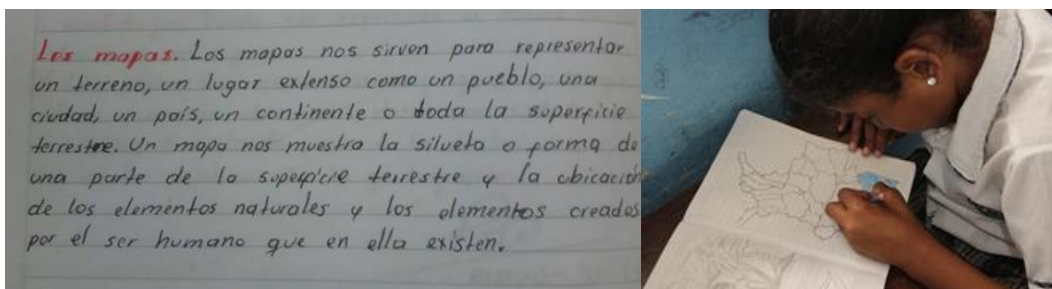 Los mapas. Los mapas nos sirven para representar
un terreno, un lugar extenso como un pueblo, una
ciudad, un país, un continente o toda la superficie
terrestre. Un mapa nos muestra la silueta o forma de
una parte de la superficie terrestre y la ubicación
de los elementos naturales y los elementos creados
por el ser humano que en ella existen.